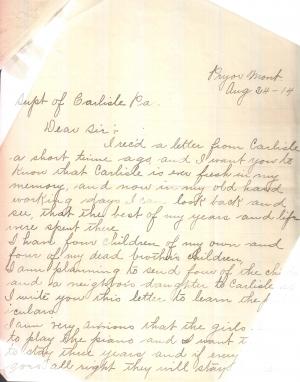 Pryor Mont
Aug 24-14
Supt of Carlisle Pa.
Dear Sir:
I rec'd a letter from Carlisle
a short time ago and I want you to
know that Carlisle is ever fresh in my
memory, and now in my old hard
working days I can look back and
see, that the best of my years and life
were spent there.
I have four children of my own and
four of my dead brothers children,
I am planning to send four of the
and a neighbors daughter to Carlisle
I write you this letter to learn the
iculars.
I am very anxious that the girls
to play the piano and I want t
to stay three years and if every
goes all right they will stay